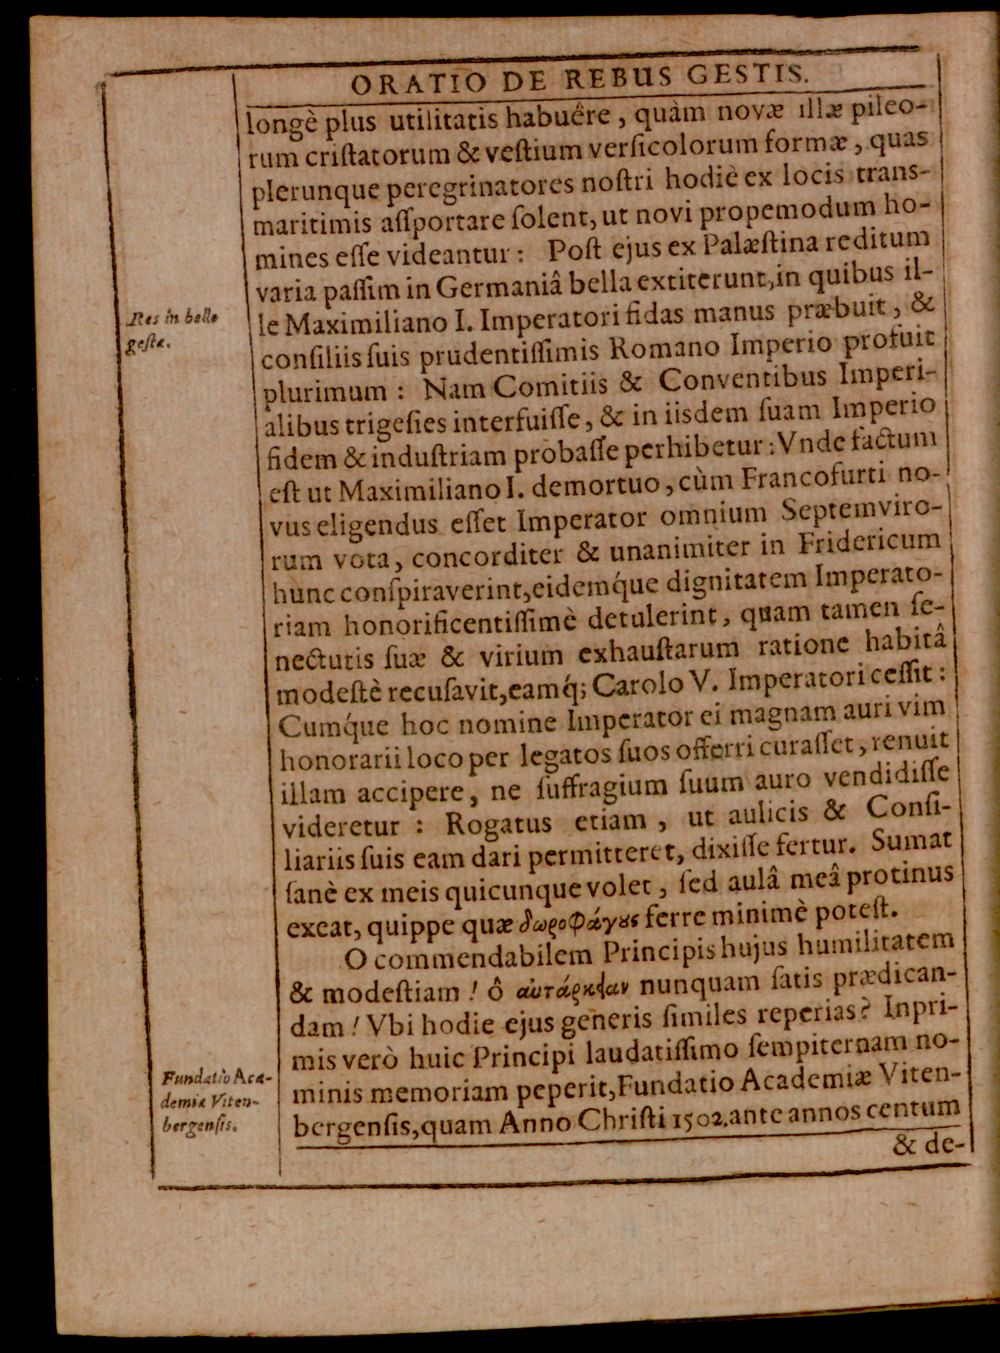 ORATIO DE REBUS GESTIS.
longè plus utilitatis habuêre, quàm novæ illæ pileo-
rum criſtatorum & veſtium verſicolorum formæ, quas
plerunque peregrinatores noſtri hodiè ex locis trans-
maritimis aſſportare ſolent, ut novi propemodum ho-
mines eſſe videantur: Poſt ejus ex Palæſtina reditum
varia paſſim in Germaniâ bella extiterunt, in quibus il-
Res in bello
geſtæ.
le Maximiliano I. Imperatori fidas manus præbuit, &
conſiliis ſuis prudentiſſimis Romano Imperio profuit
plurimum: Nam Comitiis & Conventibus Imperi-
alibus trigeſies interfuiſſe, & in iisdem ſuam Imperio
fidem & induſtriam probaſſe perhibetur: Vnde factum
eſt ut Maximiliano I. demortuo, cùm Francofurti no-
vus eligendus eſſet Imperator omnium Septemviro-
rum vota, concorditer & unanimiter in Fridericum
hunc conſpiraverint, eidemq́ue dignitatem Imperato-
riam honorificentiſſimè detulerint, quam tamen ſe-
nectutis ſuæ & virium exhauſtarum ratione habitâ
modeſtè recuſavit, eamq́; Carolo V. Imperatori ceſſit:
Cumq́ue hoc nomine Imperator ei magnam auri vim
honorarii loco per legatos ſuos offerri curaſſet, renuit
illam accipere, ne ſuffragium ſuum auro vendidiſſe
videretur: Rogatus etiam, ut aulicis & Conſi-
liariis ſuis eam dari permitteret, dixiſſe fertur. Sumat
ſanè ex meis quicunque volet, ſed aulâ meâ protinus
exeat, quippe quæ δωροφάγους ferre minimè poteſt.
O commendabilem Principis hujus humilitatem
& modeſtiam! ô αὐτάρκειαν nunquam ſatis prædican-
dam! Vbi hodie ejus generis ſimiles reperias? Inpri-
mis verò huic Principi laudatiſſimo ſempiternam no-
Fundatio Aca-
demiæ Viten-
bergenſis.
minis memoriam peperit, Fundatio Academiæ Viten-
bergenſis, quam Anno Chriſti 1502. ante annos centum
& de-